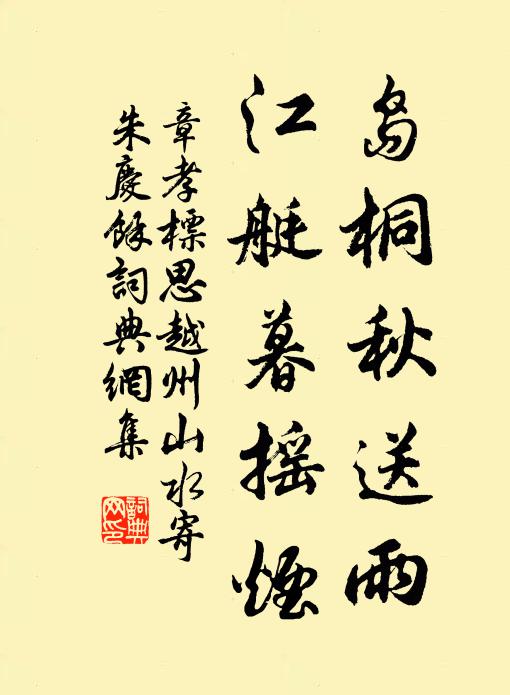 島桐秋送雨
江艇暮摇煙
章孝標思越州山水寄
朱慶餘詞典網集
詞典
网印